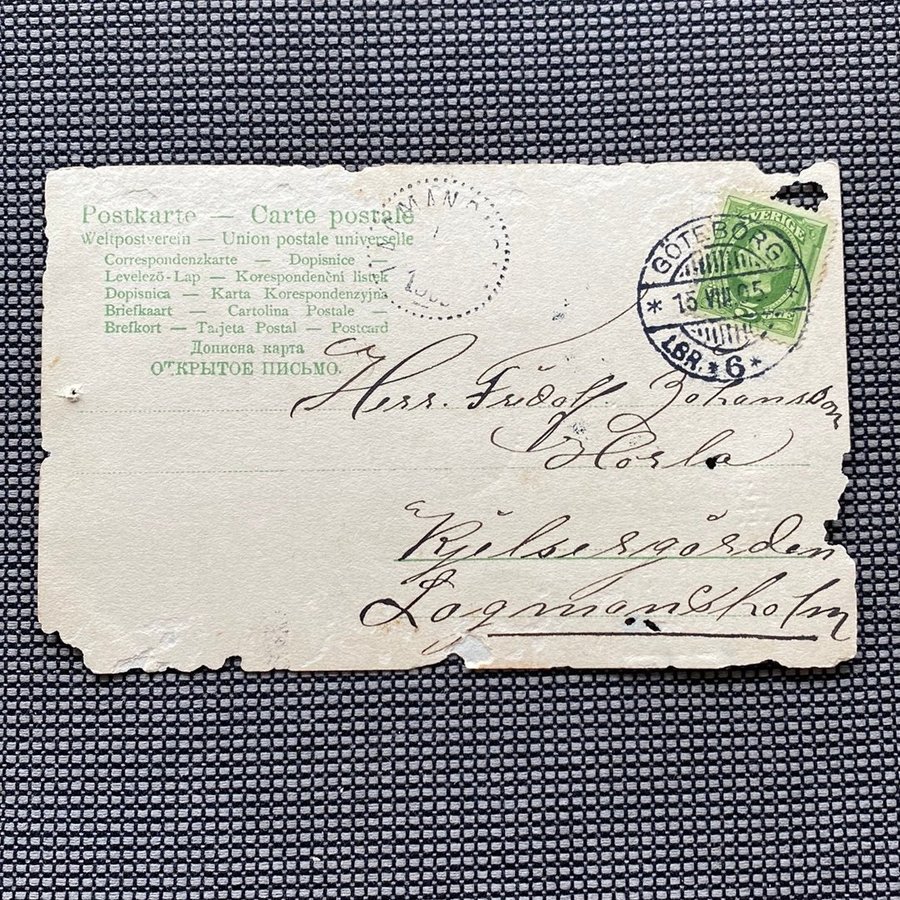 Postkarte — Carte postale
Weltpostverein — Union postale universelle
Correspondenzkarte — Dopisnice —
Levelező-Lap — Korespondenční lístek
Dopisnica — Karta Korespondenzyjna
Briefkaart — Cartolina Postale —
Brefkort — Tarjeta Postal — Postcard
Дописна карта
ОТКРЫТОЕ ПИСЬМО.
SVERIGE
GÖTEBORG
15 VIII 05
LBR. 6
Herr. Fridolf. Johansson
Horla
Kjelsergården
Lagmansholm